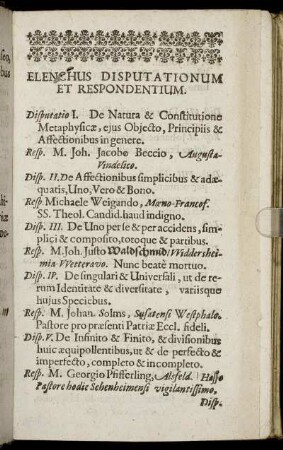 ELENCHUS DISPUTATIONUM
ET RESPONDENTIUM.
Disputatio I. De Natura & Constitutione
Metaphysicæ, ejus Objecto, Principiis &
Affectionibus in genere.
Resp. M. Joh. Jacobo Beccio, Augusta-
Vindelico.
Disp. II. De Affectionibus simplicibus & adæ-
quatis, Uno, Vero & Bono.
Resp Michaele Weigando, Mœno-Francof.
SS. Theol. Candid. haud indigno.
Disp. III. De Uno per se & per accidens, sim-
plici & composito, totoque & partibus.
Resp. M. Joh. Justo Waldschmid/Widdershei-
mia-Wetteravo. Nunc beatè mortuo.
Disp. IV. De singulari & Universali, ut de re-
rum Identitate & diversitate, variisque
hujus Speciebus.
Resp. M. Johan. Solms, Susatensi Westphalo.
Pastore pro præsenti Patriæ Eccl. fideli.
Disp. V. De Infinito & Finito, & divisionibus
huic æquipollentibus, ut & de perfecto &
imperfecto, completo & incompleto.
Resp. M. Georgio Pfifferling, Alsfeld. Hasso
Pastore hodie Sehenheimensi vigilantissimo.
Disp.